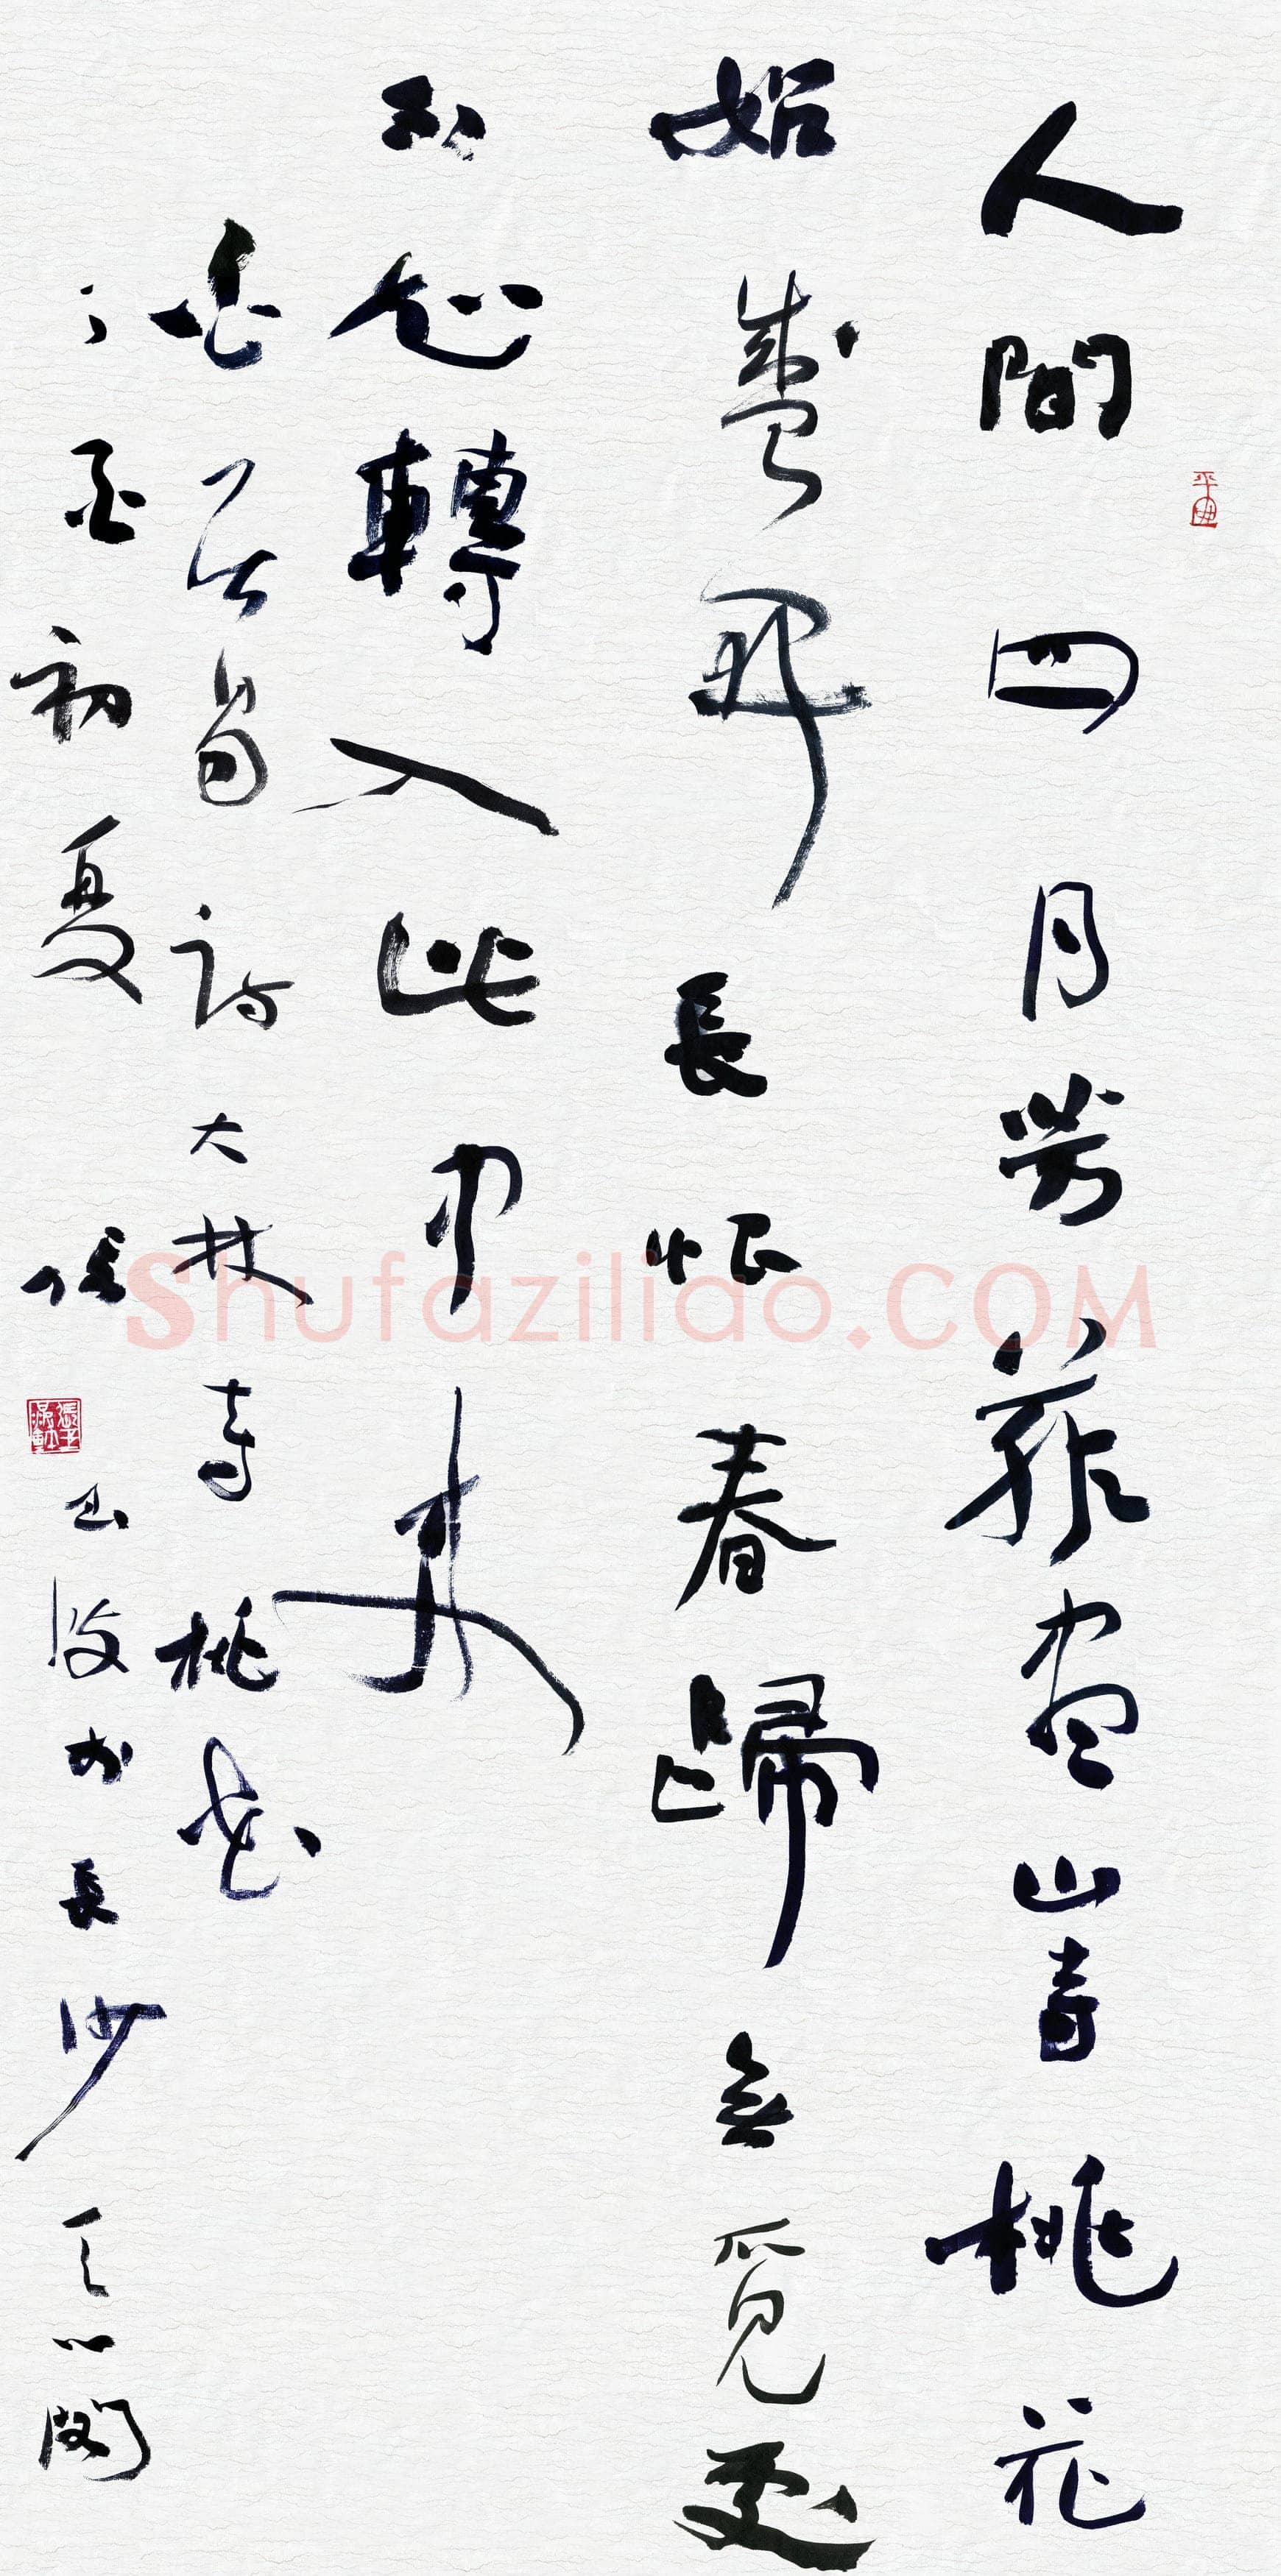 人間四月芳菲盡山寺桃花
始盛開長恨春歸無覓處
不知轉入此中來
白居易詩大林寺桃花
初夏於長沙天心閣
Shufaziliao.COM